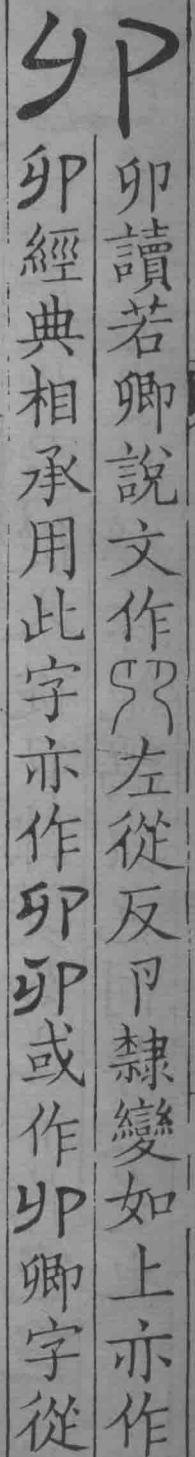 𠨍
卯讀若卿說文作左從反卪隸變如上亦作
夘經典相承用此字亦作或作卿字從